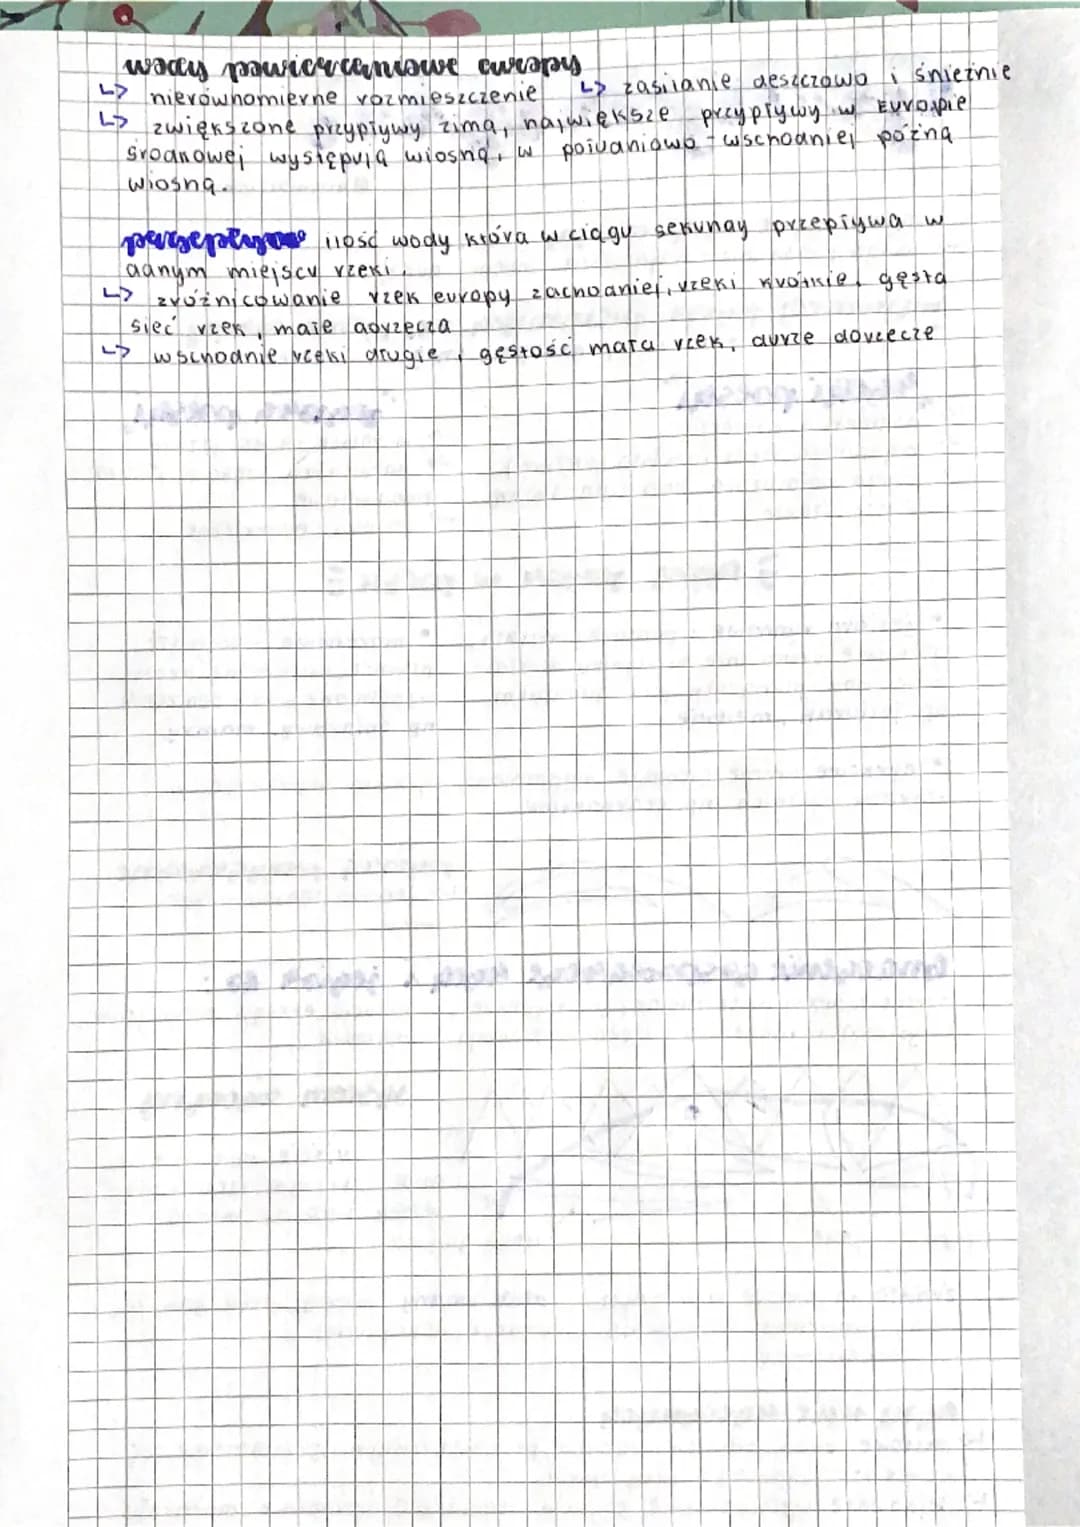 wody powierzchniowe europy
↳ nierównomierne rozmieszczenie ↳ zasilanie deszczowo i śnieżnie
↳ zwiększone przypływy zimą, największe przypływy w Europie
środkowej występują wiosną, w południowo-wschodniej późną
wiosną.
ilość wody która w ciągu sekundy przepływa w
danym miejscu rzeki.
↳ zróżnicowanie rzek europy zachodniej, rzeki krótkie, gęsta
sieć rzek, małe dorzecza
↳ wschodnie rzeki długie, gęstość mała rzek, duże dorzecze